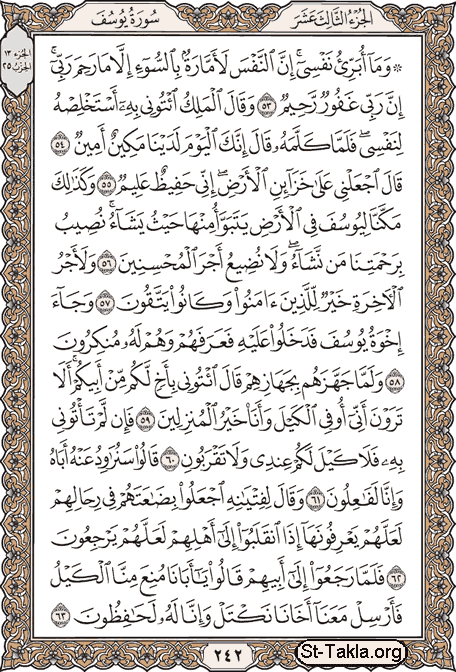 الجزء الثالث عشر
سورة يوسف
الجزء ١٣
الحزب ٢٥
۞ وَمَآ أُبَرِّئُ نَفۡسِيٓۚ إِنَّ ٱلنَّفۡسَ لَأَمَّارَةُۢ بِٱلسُّوٓءِ إِلَّا مَا رَحِمَ رَبِّيٓۚ
إِنَّ رَبِّي غَفُورٞ رَّحِيمٞ ٥٣ وَقَالَ ٱلۡمَلِكُ ٱئۡتُونِي بِهِۦٓ أَسۡتَخۡلِصۡهُ
لِنَفۡسِيۖ فَلَمَّا كَلَّمَهُۥ قَالَ إِنَّكَ ٱلۡيَوۡمَ لَدَيۡنَا مَكِينٌ أَمِينٞ ٥٤
قَالَ ٱجۡعَلۡنِي عَلَىٰ خَزَآئِنِ ٱلۡأَرۡضِۖ إِنِّي حَفِيظٌ عَلِيمٞ ٥٥ وَكَذَٰلِكَ
مَكَّنَّا لِيُوسُفَ فِي ٱلۡأَرۡضِ يَتَبَوَّأُ مِنۡهَا حَيۡثُ يَشَآءُۚ نُصِيبُ
بِرَحۡمَتِنَا مَن نَّشَآءُۖ وَلَا نُضِيعُ أَجۡرَ ٱلۡمُحۡسِنِينَ ٥٦ وَلَأَجۡرُ
ٱلۡأٓخِرَةِ خَيۡرٞ لِّلَّذِينَ ءَامَنُواْ وَكَانُواْ يَتَّقُونَ ٥٧ وَجَآءَ
إِخۡوَةُ يُوسُفَ فَدَخَلُواْ عَلَيۡهِ فَعَرَفَهُمۡ وَهُمۡ لَهُۥ مُنكِرُونَ
٥٨ وَلَمَّا جَهَّزَهُم بِجَهَازِهِمۡ قَالَ ٱئۡتُونِي بِأَخٖ لَّكُم مِّنۡ أَبِيكُمۡۚ أَلَا
تَرَوۡنَ أَنِّيٓ أُوفِي ٱلۡكَيۡلَ وَأَنَا۠ خَيۡرُ ٱلۡمُنزِلِينَ ٥٩ فَإِن لَّمۡ تَأۡتُونِي
بِهِۦ فَلَا كَيۡلَ لَكُمۡ عِندِي وَلَا تَقۡرَبُونِ ٦٠ قَالُواْ سَنُرَٰوِدُ عَنۡهُ أَبَاهُ
وَإِنَّا لَفَٰعِلُونَ ٦١ وَقَالَ لِفِتۡيَٰنِهِ ٱجۡعَلُواْ بِضَٰعَتَهُمۡ فِي رِحَالِهِمۡ
لَعَلَّهُمۡ يَعۡرِفُونَهَآ إِذَا ٱنقَلَبُوٓاْ إِلَىٰٓ أَهۡلِهِمۡ لَعَلَّهُمۡ يَرۡجِعُونَ
٦٢ فَلَمَّا رَجَعُوٓاْ إِلَىٰٓ أَبِيهِمۡ قَالُواْ يَٰٓأَبَانَا مُنِعَ مِنَّا ٱلۡكَيۡلُ
فَأَرۡسِلۡ مَعَنَآ أَخَانَا نَكۡتَلۡ وَإِنَّا لَهُۥ لَحَٰفِظُونَ ٦٣
٢٤٢
St-Takla.org